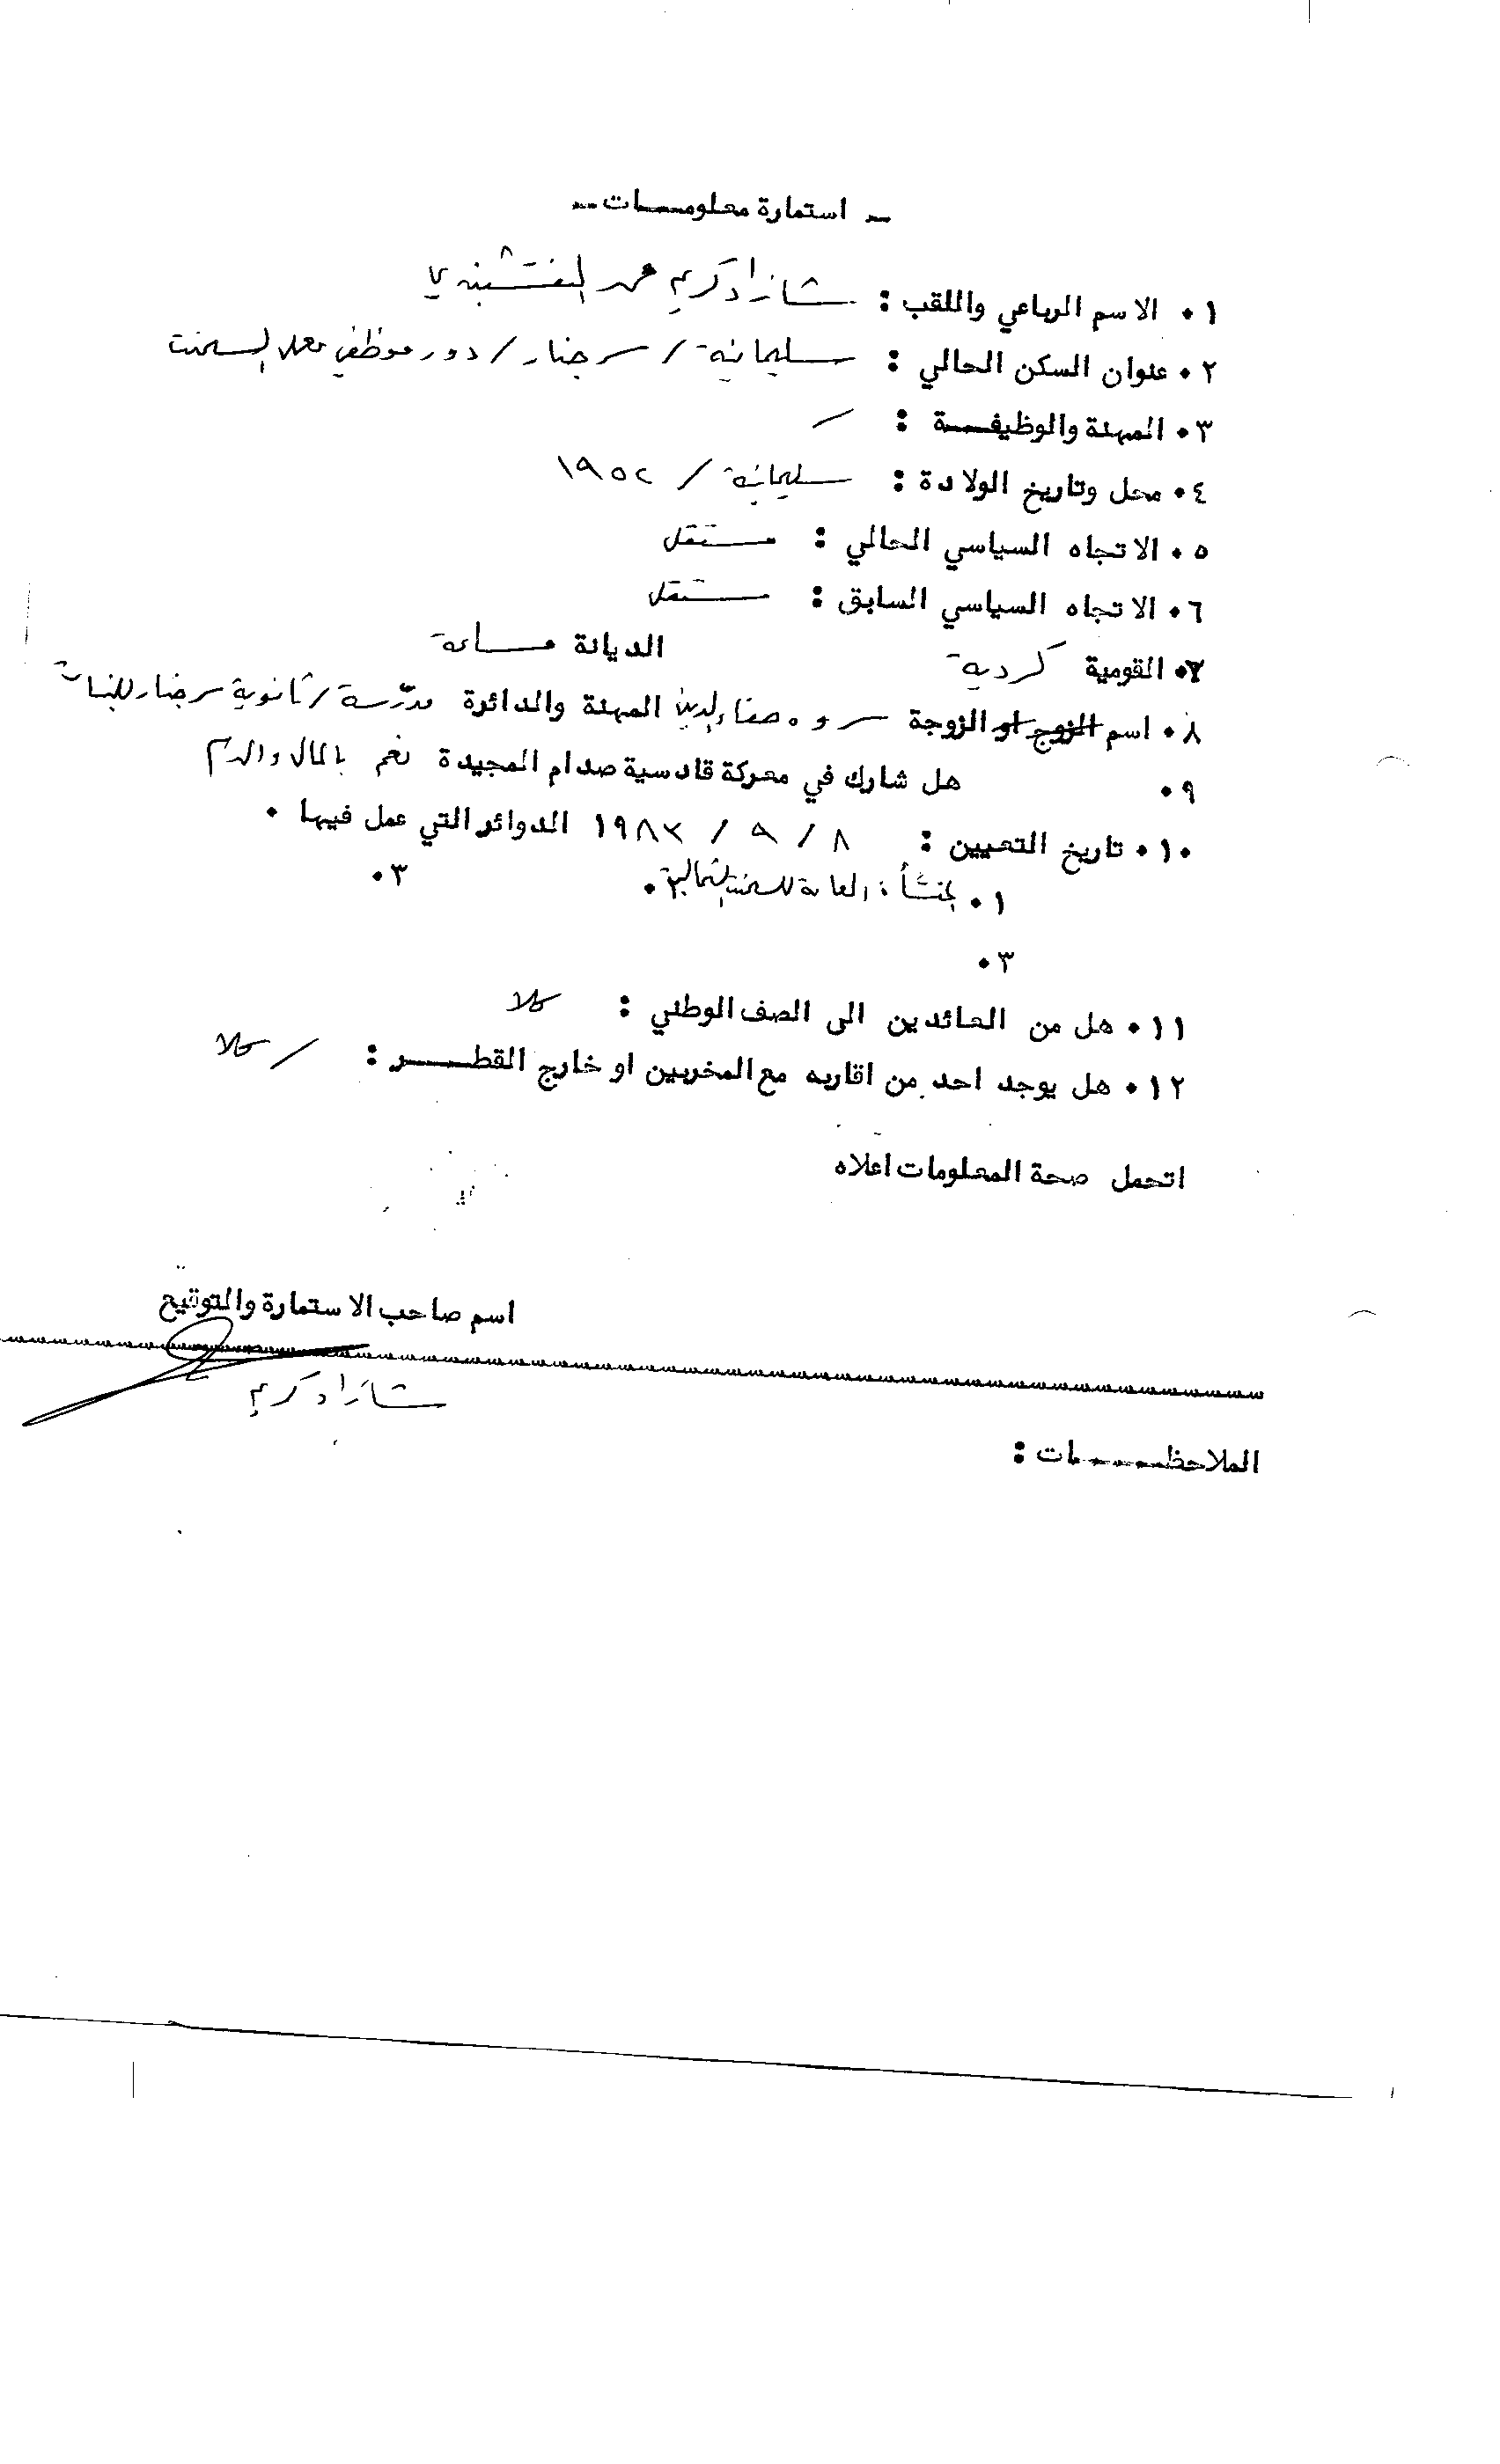 - استمارة معلومـــات -
٠١ الاسم الرباعي واللقب : شازاد كريم محمد النقشبندي
٠٢ عنوان السكن الحالي : سليمانية / سرجنار / دور موظفي معمل السمنت
٠٣ المهنة والوظيفـــة : -
٠٤ محل وتاريخ الولادة : سليمانية / ١٩٥٢
٠٥ الاتجاه السياسي الحالي : مستقل
٠٦ الاتجاه السياسي السابق : مستقل
٠٧ القومية كردية الديانة مسلمة
٠٨ اسم الزوج او الزوجة سروه صفاءالدين المهنة والدائرة مدرّسة / ثانوية سرجنار للبنات
٠٩ هل شارك في معركة قادسية صدام المجيدة نعم بالمال والدم
٠١٠ تاريخ التعيين : ٨ / ٩ / ١٩٨٢ الدوائر التي عمل فيها ٠
٠١ المنشأة العامة للسمنت الشمالية ٠٢ ٠٣
٠٣
٠١١ هل من العائدين الى الصف الوطني : كلا
٠١٢ هل يوجد احد من اقاربه مع المخربين او خارج القطـــر : / كلا
اتحمل صحة المعلومات اعلاه
اسم صاحب الاستمارة والتوقيع
شازاد كريم
الملاحظـــــات :